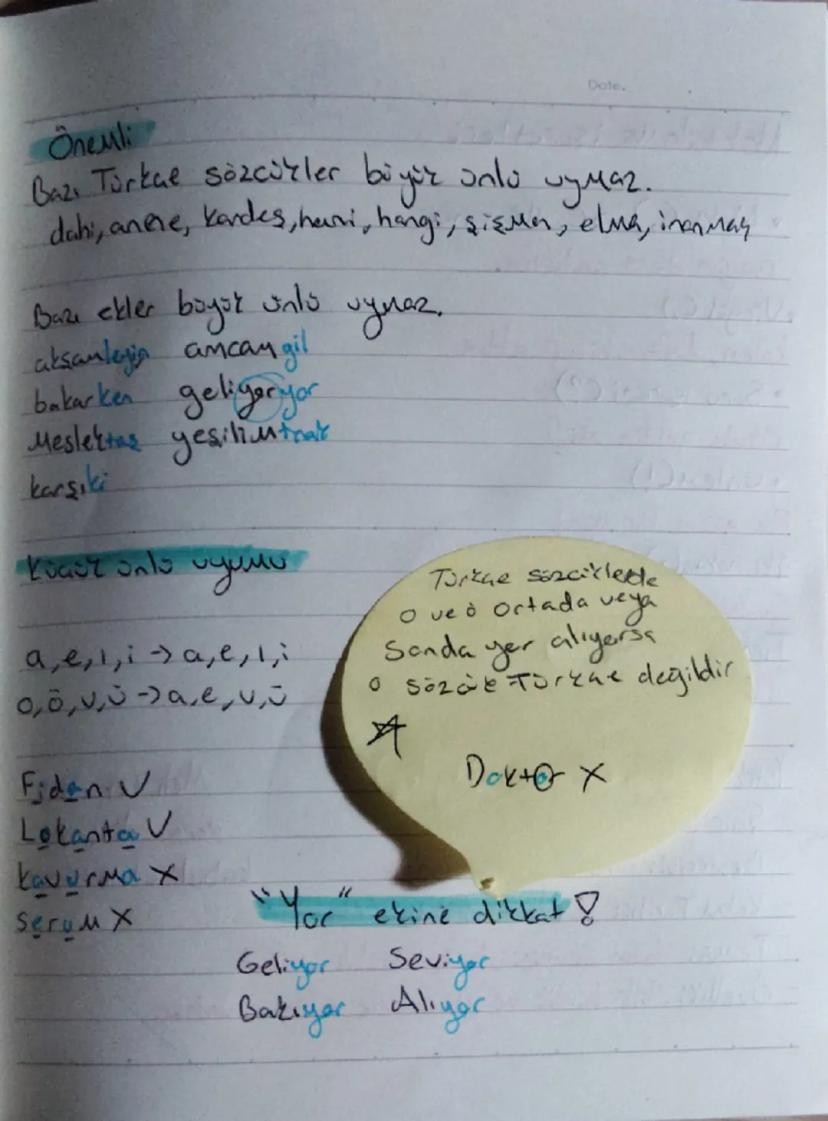 Date.
Önemli
Bazı Türkçe sözcükler büyük ünlü uymaz.
dahi, anne, kardeş, hani, hangi, şişman, elma, inanmak
Bazı ekler büyük ünlü uymaz.
akşamleyin amcamgil
bakarken geliyoryor
Meslektaş yeşilimtrak
karşıki
Küçük ünlü uyumu
a, e, ı, i -> a, e, ı, i
o, ö, u, ü -> a, e, u, ü
Fidan ✓
Lokanta ✓
Kavurma X
Serum X
Türkçe sözcüklerde
o ve ö ortada veya
sonda yer alıyorsa
o sözcük Türkçe değildir
Doktor X
"Yor" ekine dikkat!
Geliyor Seviyor
Bakıyor Alıyor